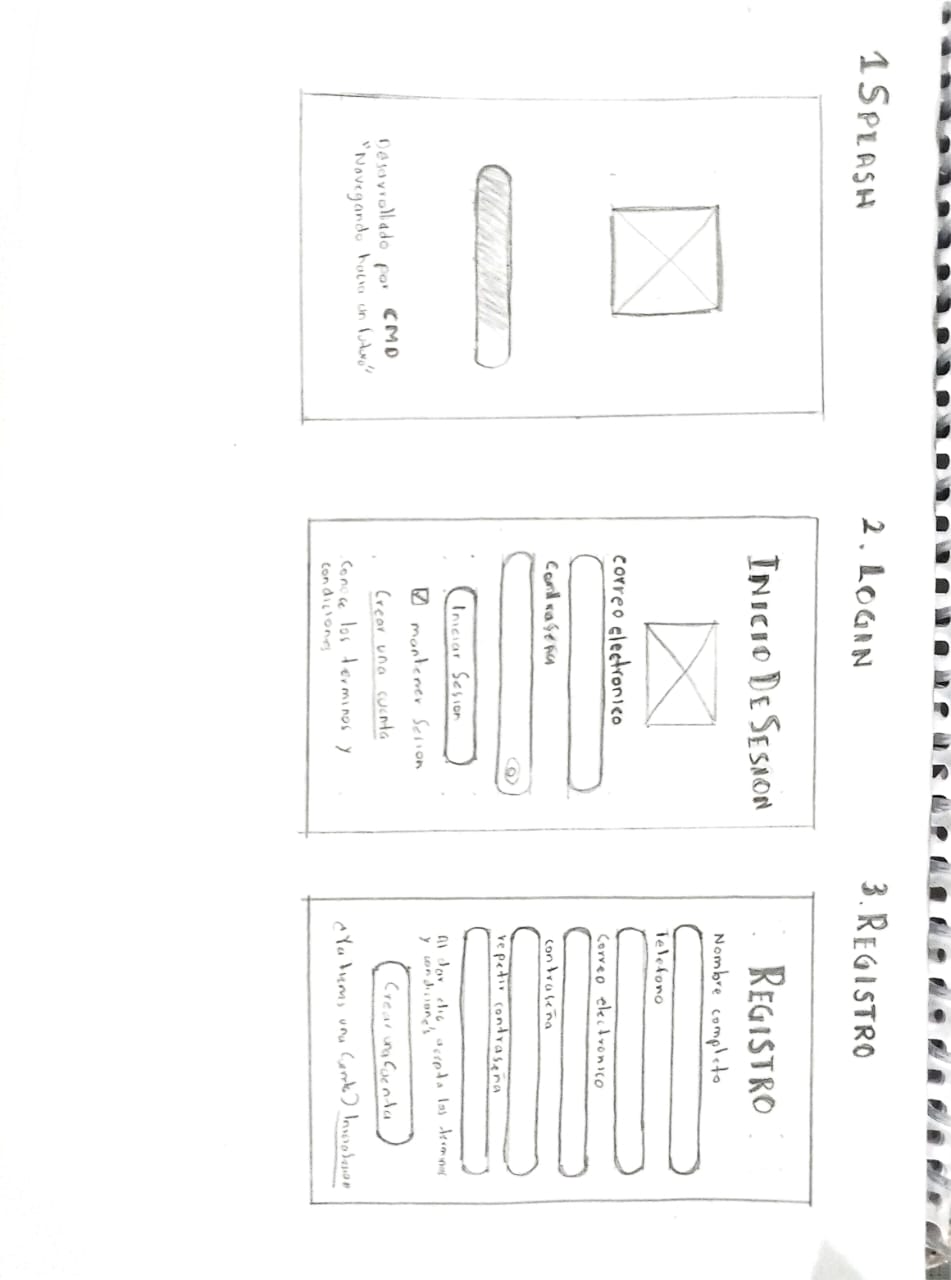 1 SPLASH
Desarrollado por CMD
"Navegando hacia un futuro"
2. LOGIN
INICIO DE SESION
correo electronico
Contraseña
Iniciar Sesion
mantener Sesion
Crear una cuenta
Conoce los terminos y
condiciones
3. REGISTRO
REGISTRO
Nombre completo
Telefono
Correo electronico
contraseña
repetir contraseña
Al dar clic, acepta los terminos
y condiciones
Crear una Cuenta
¿Ya tienes una Cuenta?